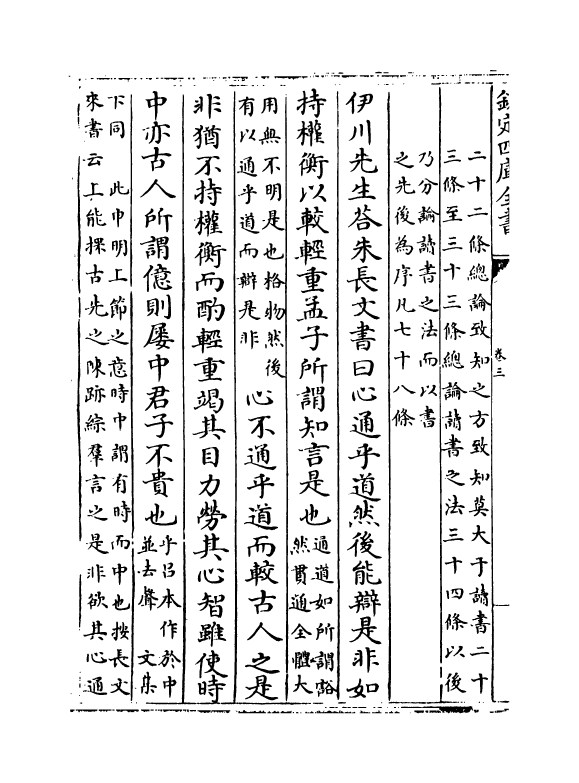 欽定四庫全書
卷三
二十二條總論致知之方致知莫大于讀書二十
三條至三十三條總論讀書之法三十四條以後
乃分論讀書之法而以書
之先後為序凡七十八條
伊川先生荅朱長文書曰心通乎道然後能辯是非如
持權衡以較輕重孟子所謂知言是也
通道如所謂豁
然貫通全體大
用無不明是也格物然後
有以通乎道而辯是非
心不通乎道而較古人之是
非猶不持權衡而酌輕重竭其目力勞其心智雖使時
中亦古人所謂億則屢中君子不貴也
乎呂本作於中
並去聲 文集
下同 此申明上節之意時中謂有時而中也按長文
來書云上能探古先之陳跡綜羣言之是非欲其心通